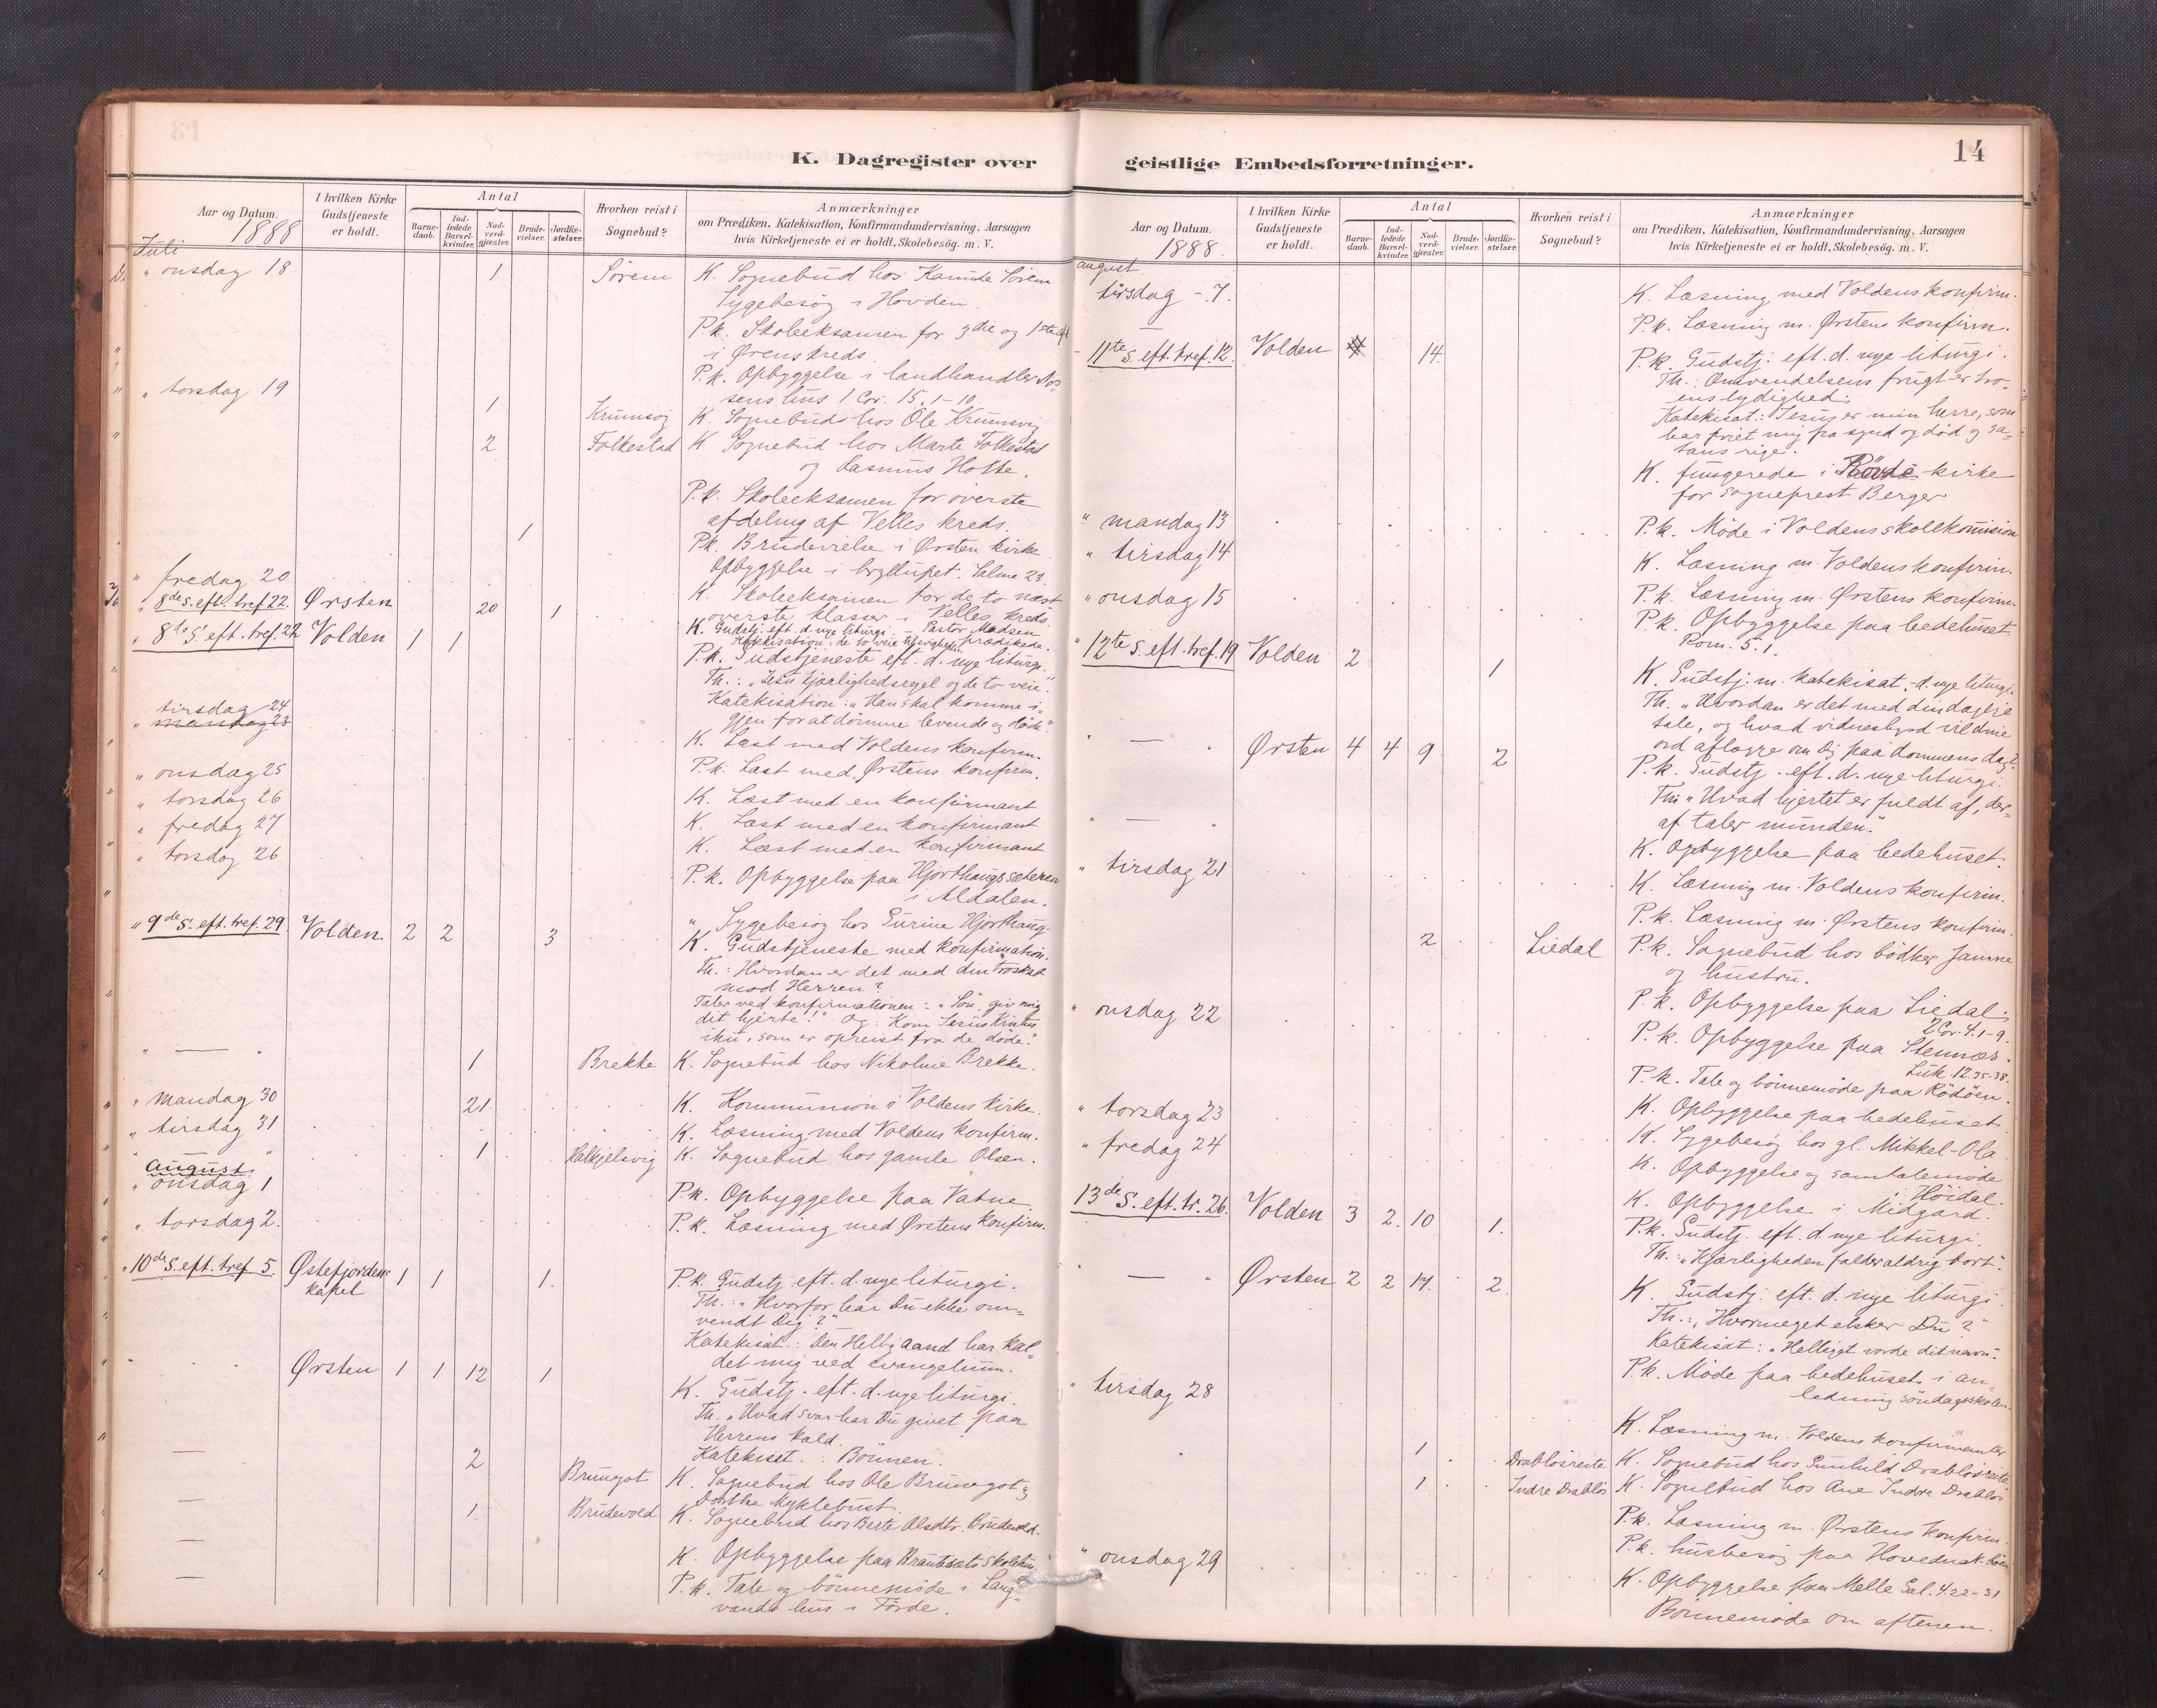 K. Dagregister over
Aar og Datum.
1888
I hvilken Kirke
Gudstjeneste
er holdt.
Antal
Barne-
daab.
Ind-
ledede
Barsel-
kvinder.
Nad-
verd-
gjester.
Brude-
vielser.
Jordfæ-
stelser.
Hvorhen reist i
Sognebud?
Anmærkninger
om Prædiken, Katekisation, Konfirmandundervisning, Aarsagen
hvis Kirketjeneste ei er holdt, Skolebesög. m. V.
Juli
" onsdag 18 1 Sörem K. Sognebud hos Sörem
Sygebesög i Hovden
P.k. Skoleeksamen for 3die og 1ste
i Ørens kreds.
" torsdag 19 P.k. Opbyggelse i landhandler
sens hus 1 Cor. 15. 1-10.
1 Krumsvig K. Sognebud hos Ole Krumsvig
2 Folkestad K Sognebud hos Marte Folkestad
og Rasmus Holte.
P.k. Skoleeksamen for överste
afdeling af Velles kreds.
1 P.k. Brudevielse i Ørsten kirke
Opbyggelse i bryllupet. Salme 23.
" fredag 20 K. Skoleeksamen for de to næst
överste klasser i Velles kreds.
" 8de S. eft. tref 22. Ørsten 20 1 K. Gudstj. eft. d. nye liturgi. - Pastor Madsen
prædikede.
" 8de S. eft. tref. 22 Volden 1 1 P.k. Gudstjeneste eft. d. nye liturgi.
Th.: "Jesu kjærlighedsegel og de to veie".
Katekisation: "Han skal komme i-
gjen for at dömme levende og döde."
tirsdag 24
" mandag 23 K. Læst med Voldens konfirm.
P.k. Læst med Ørstens konfirm.
" onsdag 25 K. Læst med en konfirmant
" torsdag 26 K. Læst med en konfirmant
" fredag 27 K. Læst med en konfirmant
" torsdag 26 P.k. Opbyggelse paa Hjorthaugssæteren
i Aldalen.
" Sygebesög hos Gurine Hjorthaug.
" 9de S. eft. tref. 29. Volden 2 2 3 K. Gudstjeneste med konfirmation.
Th.: Hvordan er det med din troskab
mod Herren?
Taler ved konfirmationen: "Sön, giv mig
dit hjerte!" Og: Kom Jesus Kristus
ihu, som er opreist fra de döde."
" — " 1 Brekke K. Sognebud hos Nikoline Brekke.
" mandag 30 21 K. Kommunion i Voldens kirke.
" tirsdag 31 K. Læsning med Voldens konfirm.
1 Halkjelsvig K. Sognebud hos gamle Olsen.
August
" onsdag 1 P.k. Opbyggelse paa Vatne.
" torsdag 2. P.k. Læsning med Ørstens konfirm.
" 10de S. eft. tref 5. Østefjordens 1 1 1. P.k. Gudstj. eft. d. nye liturgi.
kapel
Th.: "Hvorfor har Du ikke om-
vendt Dig?"
Katekisat.: Den Hellig Aand har kal-
det mig ved evangelium.
Ørsten 1 1 12 1 K. Gudstj. eft. d. nye liturgi.
Th. "Hvad svar har Du givet paa
Herrens kald.
Katekisat.: Bönnen.
— 2 Brungot K. Sognebud hos Ole Brungot og
Dorthe Myklebust
— 1. Brudevold K. Sognebud hos Berte Olsdtr. Brudevold.
— K. Opbyggelse paa skolehus
— P.k. Tale og bönnemöde i Lang-
vands hus i Förde.
geistlige Embedsforretninger.
14
Aar og Datum.
1888.
I hvilken Kirke
Gudstjeneste
er holdt.
Antal
Barne-
daab.
Ind-
ledede
Barsel-
kvinder.
Nad-
verd-
gjester.
Brude-
vielser.
Jordfæ-
stelser.
Hvorhen reist i
Sognebud?
Anmærkninger
om Prædiken, Katekisation, Konfirmandundervisning, Aarsagen
hvis Kirketjeneste ei er holdt, Skolebesög. m. V.
august
tirsdag - 7. K. Læsning med Voldens konfirm.
— P.k. Læsning m. Ørstens konfirm.
- 11te S. eft. tref. 12. Volden 14. P.k. Gudstj. eft. d. nye liturgi.
Th.: Omvendelsens frugt er tro-
ens lydighed.
Katekisat.: Jesus er min herre, som
har friet mig fra synd og död og sa-
tans rige.
K. fungerede i Rövde kirke
for sogneprest Berger
" mandag 13 P.k. Möde i Voldens skolkomision
" tirsdag 14 K. Læsning m. Voldens konfirm.
" onsdag 15 P.k. Læsning m. Ørstens konfirm.
P.k. Opbyggelse paa bedehuset
Rom. 5. 1.
" 12te S. eft. tref. 19 Volden 2 1 K. Gudstj. m. katekisat. - d. nye liturgi.
Th. "Hvordan er det med din daglige
tale, og hvad vidnesbyrd vil dine
ord aflægge om dig paa dommens dag?
" — " Ørsten 4 4 9 2 P.k. Gudstj. eft. d. nye liturgi.
Th: "Hvad hjertet er fuldt af, der-
af taler munden."
" — " K. Opbyggelse paa bedehuset.
" tirsdag 21 K. Læsning m. Voldens konfirm.
P.k. Læsning m. Ørstens konfirm.
2 Liedal P.k. Sognebud hos bödker Jamne
og hustru.
P.k. Opbyggelse paa Liedal.
2 Cor. 4. 1-9.
" onsdag 22 P.k. Opbyggelse paa Stennæs.
Luk. 12. 35-38.
P.k. Tale og bönnemöde paa Rödöen.
" torsdag 23 K. Opbyggelse paa bedehuset.
" fredag 24 K. Sygebesög hos gl. Mikkel-Ola
K. Opbyggelse og samtalemöde
i Höidal.
K. Opbyggelse i Midgard.
13de S. eft. tr. 26. Volden 3 2. 10 1. P.k. Gudstj. eft. d. nye liturgi.
Th.: "Kjærligheden falder aldrig bort".
" — " Ørsten 2 2 14. 2. K. Gudstj. eft. d. nye liturgi.
Th.: "Hvormeget elsker Du?"
Katekisat: "Helliget vorde dit navn".
" tirsdag 28 P.k. Möde paa bedehuset i an-
ledning söndagsskolen.
K. Læsning m. Voldens konfirmanter
1 Drablösreite K. Sognebud hos Gunhild Drablösreite
1 Indre Drablös K. Sognebud hos Ane Indre Drablös
P.k. Læsning m. Ørstens konfirm.
" onsdag 29 P.k. husbesög paa
K. Opbyggelse paa Melle Gal. 4 22-31
Bönnemöde om aftenen.